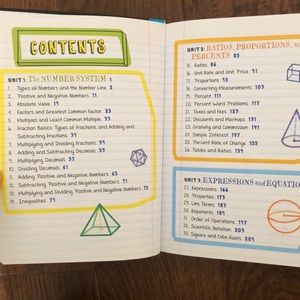 CONTENTS
UNIT 1: The NUMBER SYSTEM 1
1. Types of Numbers and the Number Line 2
2. Positive and Negative Numbers 11
3. Absolute Value 19
4. Factors and Greatest Common Factor 25
5. Multiples and Least Common Multiple 33
6. Fraction Basics: Types of Fractions, and Adding and
Subtracting Fractions 39
7. Multiplying and Dividing Fractions 49
8. Adding and Subtracting Decimals 53
9. Multiplying Decimals 57
10. Dividing Decimals 61
11. Adding Positive and Negative Numbers 65
12. Subtracting Positive and Negative Numbers 71
13. Multiplying and Dividing Positive and Negative Numbers 75
14. Inequalities 79
UNIT 2: RATIOS, PROPORTIONS, and
PERCENTS 85
15. Ratios 86
16. Unit Rate and Unit Price 91
17. Proportions 95
18. Converting Measurements 103
19. Percent 111
20. Percent Word Problems 117
21. Taxes and Fees 123
22. Discounts and Markups 131
23. Gratuity and Commission 141
24. Simple Interest 147
25. Percent Rate of Change 155
26. Tables and Ratios 159
UNIT 3: EXPRESSIONS and EQUATIONS
27. Expressions 166
28. Properties 173
29. Like Terms 183
30. Exponents 189
31. Order of Operations 197
32. Scientific Notation 203
33. Square and Cube Roots 209